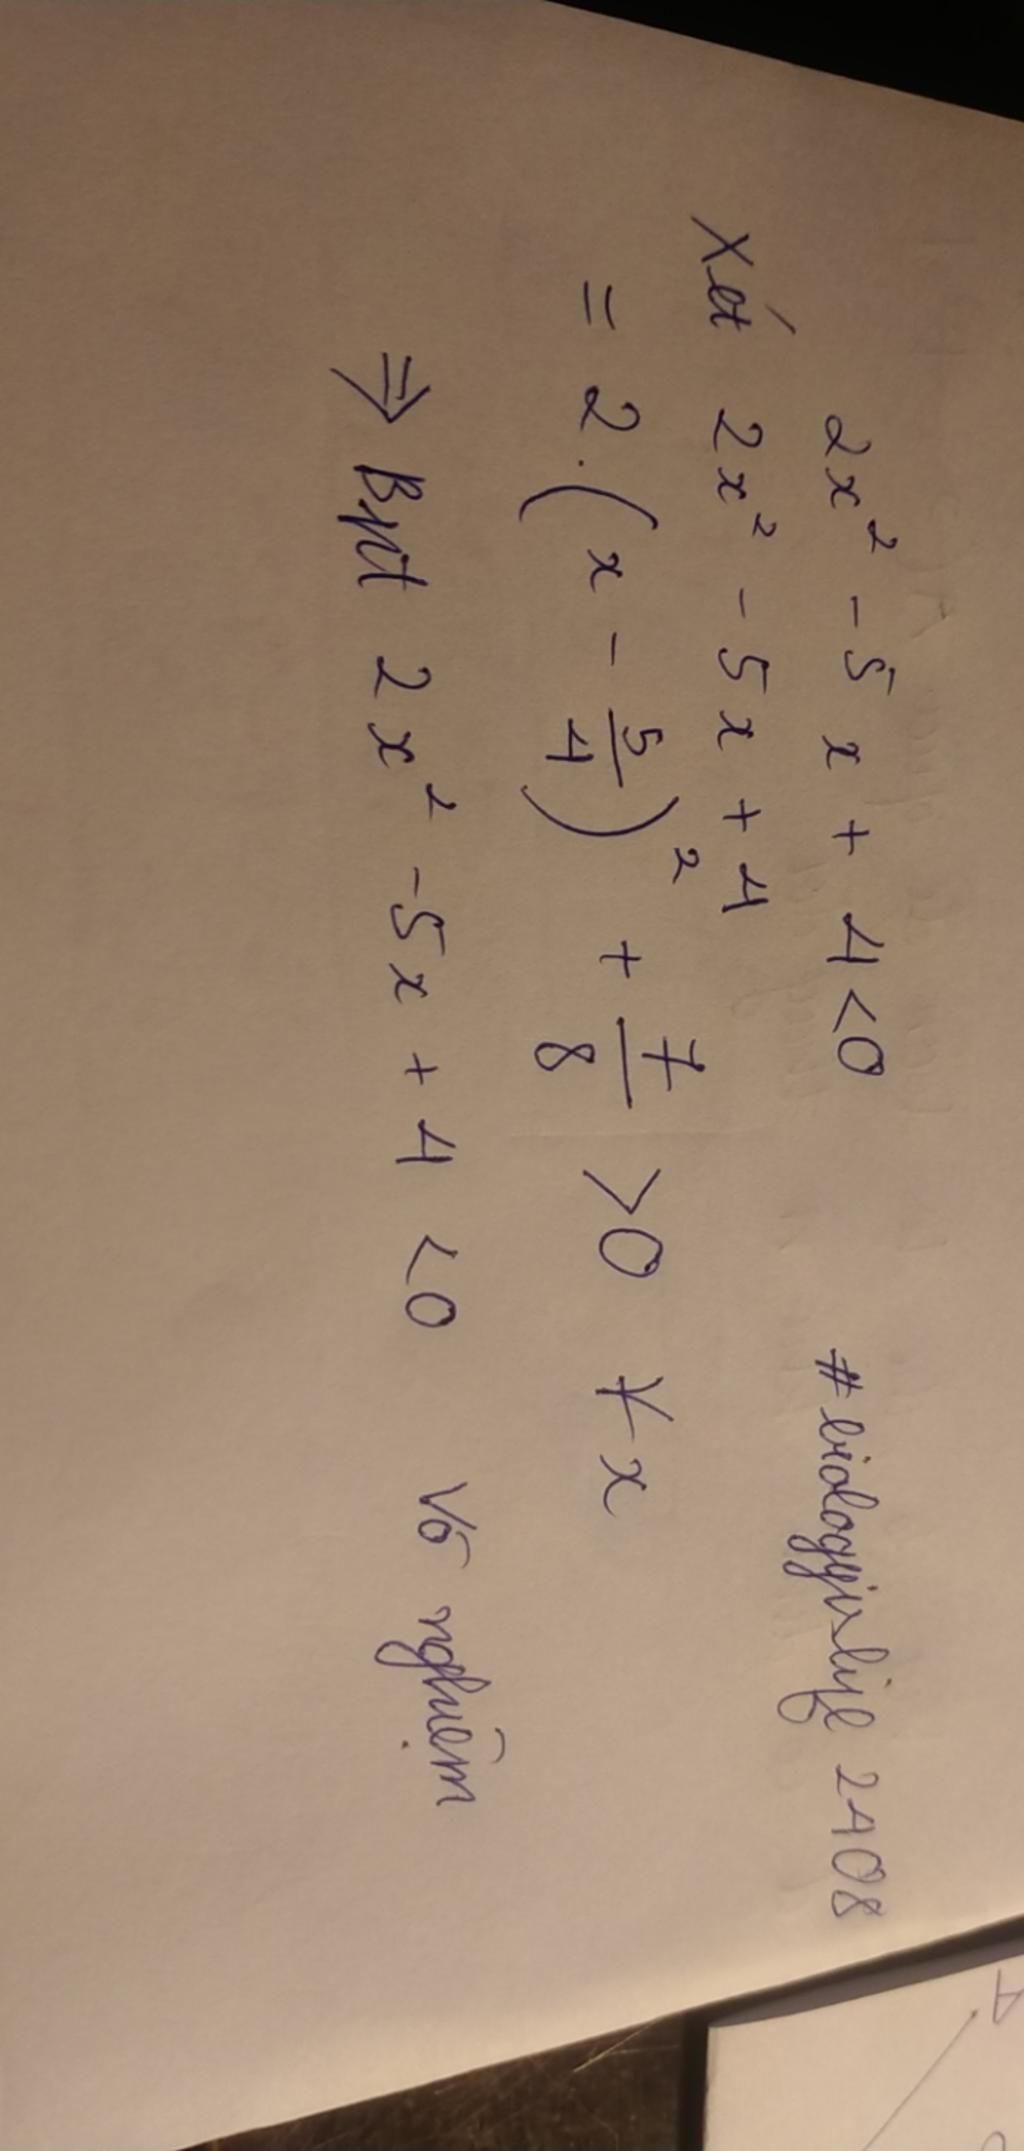 2x² - 5x + 4 < 0 #biologyislife2408
Xét 2x² - 5x + 4
= 2.(x - 5/4)² + 7/8 > 0 ∀x
⇒ Bpt 2x² - 5x + 4 < 0 vô nghiệm
A